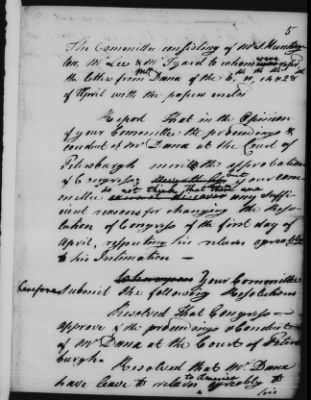 5
The Committee consisting of Mr. S. Hunting
ton, Mr. Lee & Mr. Izard to whom were
the Letter from Mr. Dana of the
of April with the papers enclos
Report That in the Opinion
of your Committee the proceedings &
conduct of Mr. Dana at the Court of
Petersburgh merits the approbation
of Congress; but your com
mittee do not think that there are
any suffi
cient reasons for changing the Reso-
lution of Congress of the first day of
April, respecting his return agreeably
to his Intimation —
Your Committee
therefore Submit the following Resolutions
Resolved That Congress
approve of the proceedings & Conduct
of Mr Dana at the Court of Peters
burgh.
Resolved that Mr. Dana
have leave to return to America agreeably to
his